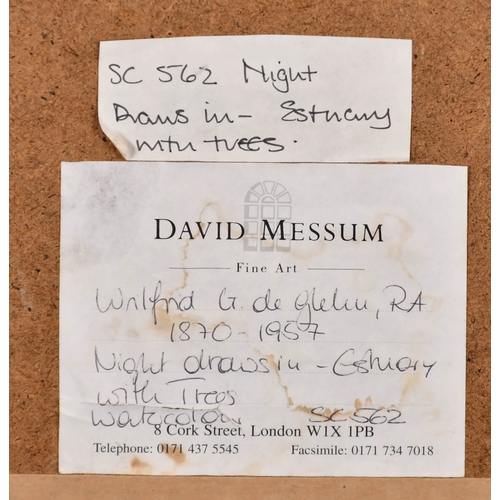 SC 562 Night
Draws in - Estuary
with trees.
DAVID MESSUM
Fine Art
Wilfrid G. de Glehn, RA
1870-1957
Night draws in - Estuary
with Trees
Watercolour SC 562
8 Cork Street, London W1X 1PB
Telephone: 0171 437 5545 Facsimile: 0171 734 7018